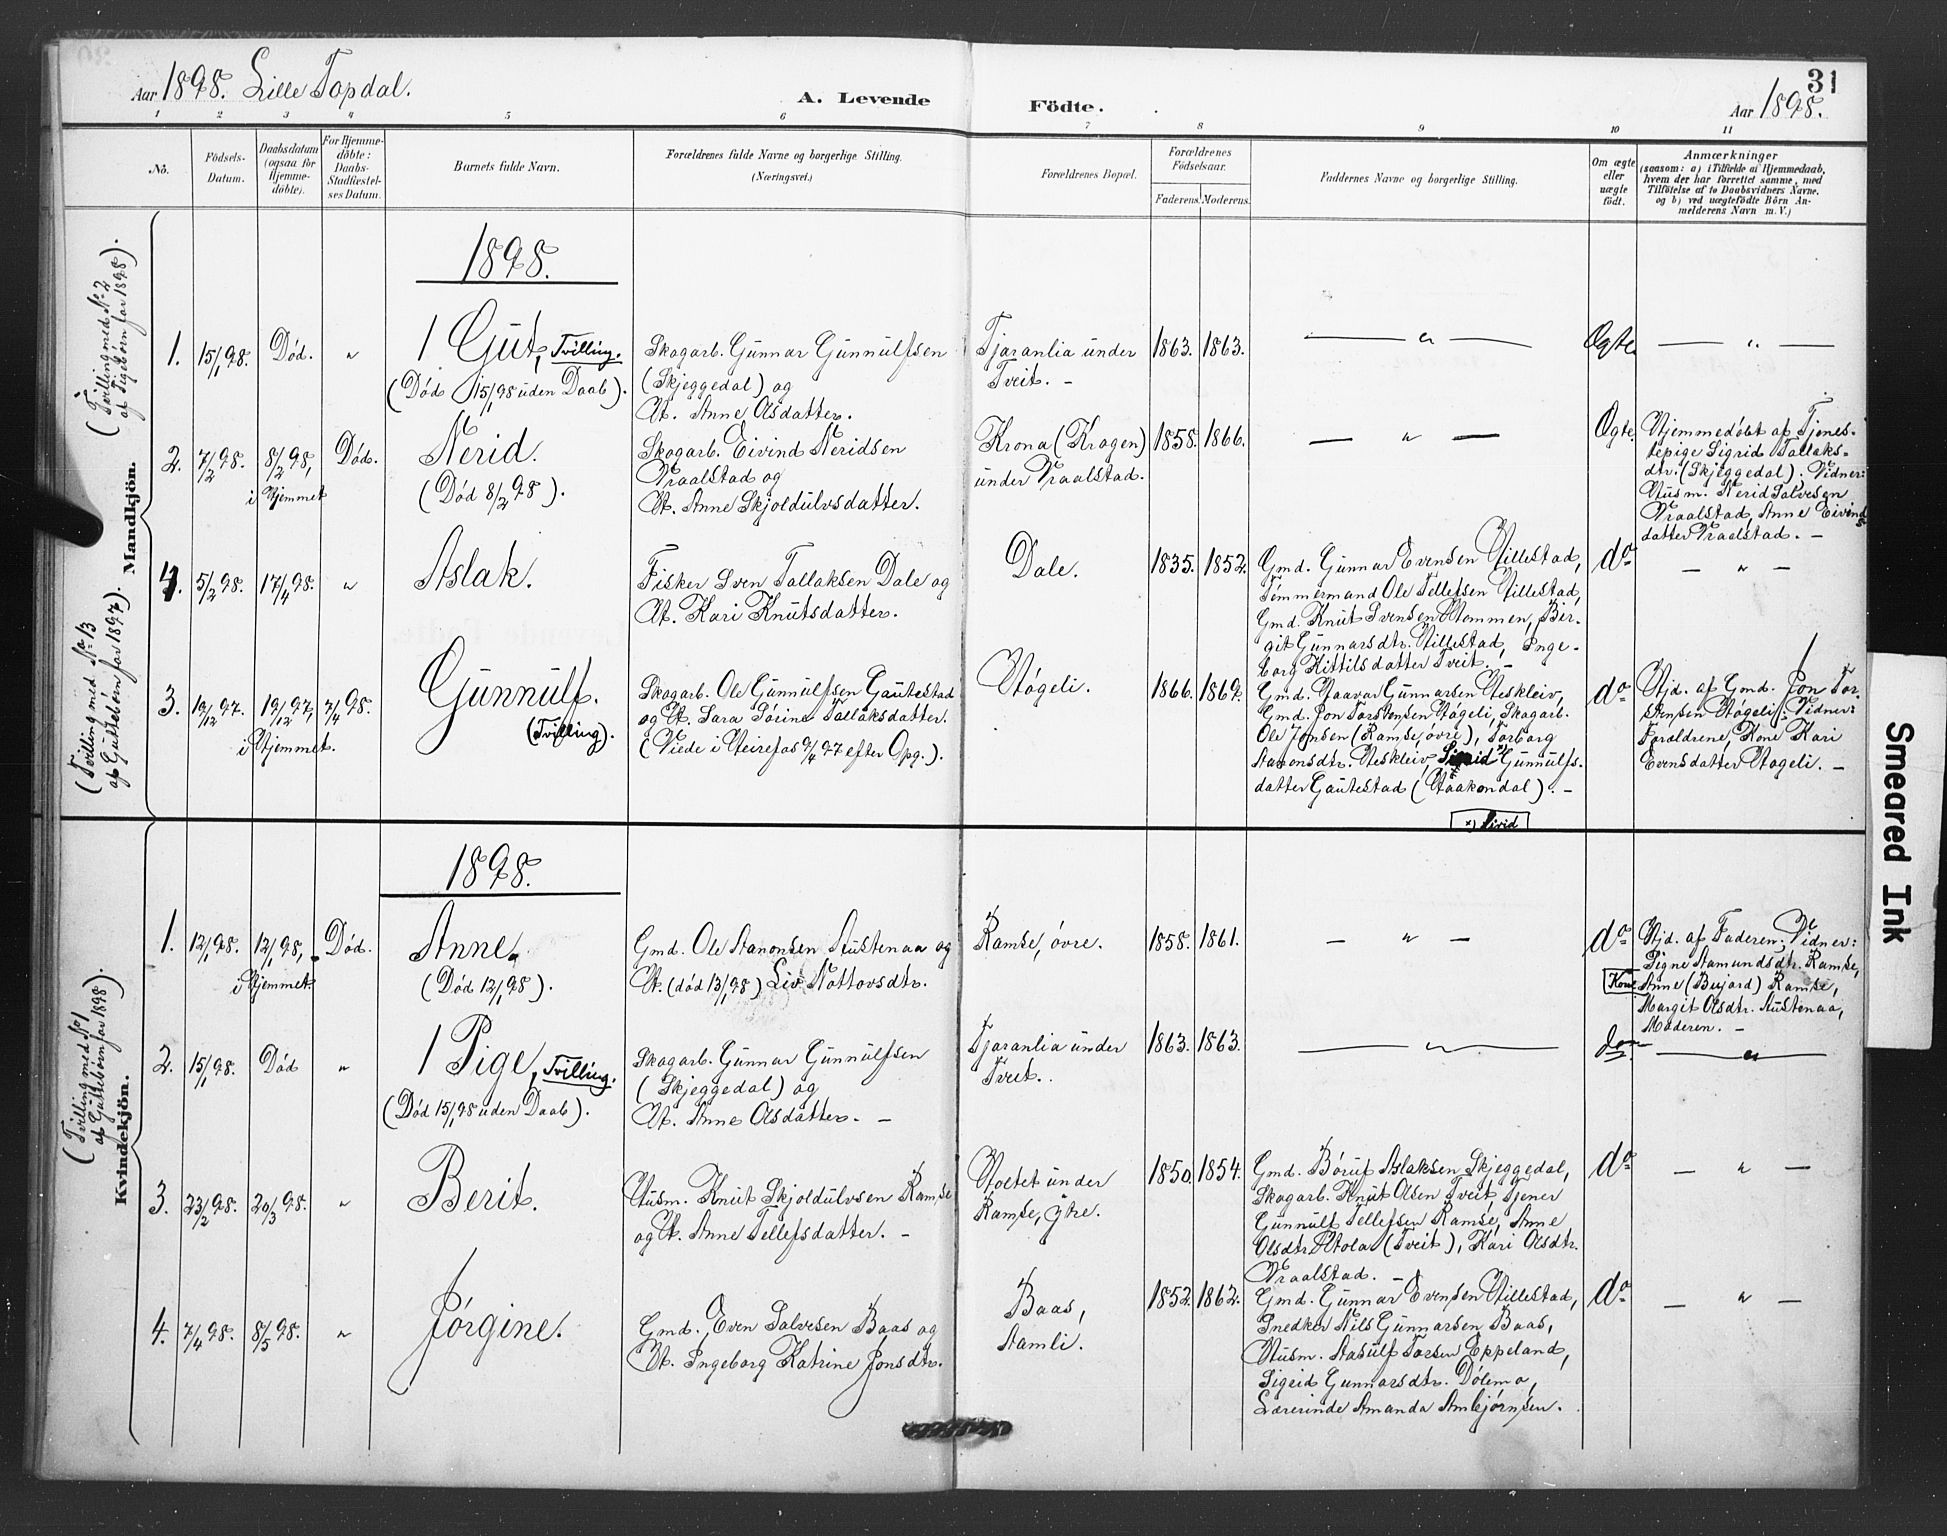 31
Aar 1898. Lille Topdal.
A. Levende Födte.
Aar 1898.
1 2 3 4 5 6 7 8 9 10 11
No.
Födsels-Datum.
Daabsdatum (ogsaa for Hjemme-döbte).
For Hjemme-döbte: Daabs-Stadfæstel-ses Datum.
Barnets fulde Navn.
Forældrenes fulde Navne og borgerlige Stilling. (Næringsvei.)
Forældrenes Bopæl.
Forældrenes Födselsaar.
Faderens. Moderens.
Faddernes Navne og borgerlige Stilling.
Om ægte eller uægte födt.
Anmærkninger
(saasom: a) i Tilfælde af Hjemmedaab,
hvem der har forrettet samme, med
Tilföielse af to Daabsvidners Navne,
og b) ved uægtefödte Börn An-
melderens Navn m. V.)
Mandkjön.
(Tvilling med No 2
af Pigebørn for 1898).
(Tvilling med No 13
af Guttebørn for 1897).
1898.
1. 15/1 98. Død. " 1 Gut, Tvilling.
(Død 15/1 98 uden Daab).
Skogarb. Gunnar Gunnulfsen
(Skjeggedal) og
H. Anne Olsdatter.
Tjaranlia under
Tveit. -
1863. 1863. — " — Ægte — " —
2. 7/2 98. 8/2 98, i Hjemmet Død. Nerid.
(Død 8/2 98).
Skogarb. Eivind Neridsen
Vraalstad og
H. Anne Skjoldulvsdatter.
Krona (Kragen)
under Vraalstad.
1858. 1866. — " — Ægte.
Hjemmedøbt af Tjenes-
tepige Sigrid Tallaks-
dtr. (Skjeggedal). Vidner:
Husm. Nerid Salvesen
Vraalstad, Anne Eivinds
datter Vraalstad. -
4. 5/2 98. 17/4 98. " Aslak.
Fisker Sven Tallaksen Dale og
H. Kari Knutsdatter.
Dale.
1835. 1852.
Gmd. Gunnar Evensen Hillestad,
Tømmermand Ole Tellefsen Hillestad,
Gmd. Knut Svensen Hommen, Bir-
git Gunnarsdtr. Hillestad, Inge-
borg Kittilsdatter Tveit. -
do — " —
3. 19/12 97. 19/12 97, i Hjemmet. 7/4 98. Gunnulf.
(Tvilling).
Skogarb. Ole Gunnulfsen Gautestad
og H. Sara Sørine Tallaksdatter.
(Viede i Heirefos 9/4 97 efter Opg.).
Høgeli.
1866. 1869.
Gmd. Haavar Gunnarsen Heskleiv,
Gmd. Jon Torstensen Høgeli, Skogarb.
Ole Jonsen (Ramse, øvre), Torborg
Aanonsdtr. Heskleiv, x) Gunnulfs-
datter Gautestad (Haakondal). -
x) Sivid
do
Hjd. af Gmd. Jon Tor-
stensen Høgeli; Vidner:
Forældrene, Kone Kari
Evensdatter Høgeli. -
Kvindekjön.
(Tvilling med No 1
af Guttebørn for 1898).
1898.
1. 12/1 98. 12/1 98, i Hjemmet. Død. Anne.
(Død 12/1 98).
Gmd. Ole Aanonsen Austenaa og
H. (død 13/1 98) Liv Nottovsdtr.
Ramse, øvre.
1858. 1861. — " — do
Hjd. af Faderen; Vidner:
Signe Aamundsdtr. Ramse,
Kone Anne (Beijord) Ramse,
Margit Olsdtr. Austenaa,
Moderen. -
2. 15/1 98. Død " 1 Pige, Tvilling.
(Død 15/1 98 uden Daab).
Skogarb. Gunnar Gunnulfsen
(Skjeggedal) og
H. Anne Olsdatter. -
Tjaranlia under
Tveit.
1863. 1863. — " — do — " —
3. 23/2 98. 20/3 98. " Berit.
Husm. Knut Skjoldulvsen Ramse
og H. Anne Tellefsdatter. -
Holtet under
Ramse, ytre.
1850. 1854.
Gmd. Børuf Aslaksen Skjeggedal,
Skogarb. Knut Olsen Tveit, Tjener
Gunnulf Tellefsen Ramse, Anne
Olsdtr. Stola (Tveit), Kari Olsdtr.
Vraalstad. -
do — " —
4. 7/4 98. 8/5 98. " Jørgine.
Gmd. Even Salvesen Baas og
H. Ingeborg Katrine Jonsdtr.
Baas,
Aamli.
1852. 1862.
Gmd. Gunnar Evensen Hillestad,
Snedker Nils Gunnarsen Baas,
Husm. Aasulf Torsen Eppeland,
Sigrid Gunnarsdtr. Dølemo,
Lærerinde Amanda Ambjørnsen.
do — " —
Smeared Ink